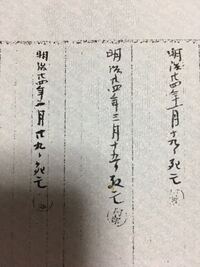 明治廿四年二月十九日死亡
明治廿四年三月十五日死亡
明治廿四年一月廿九日死亡